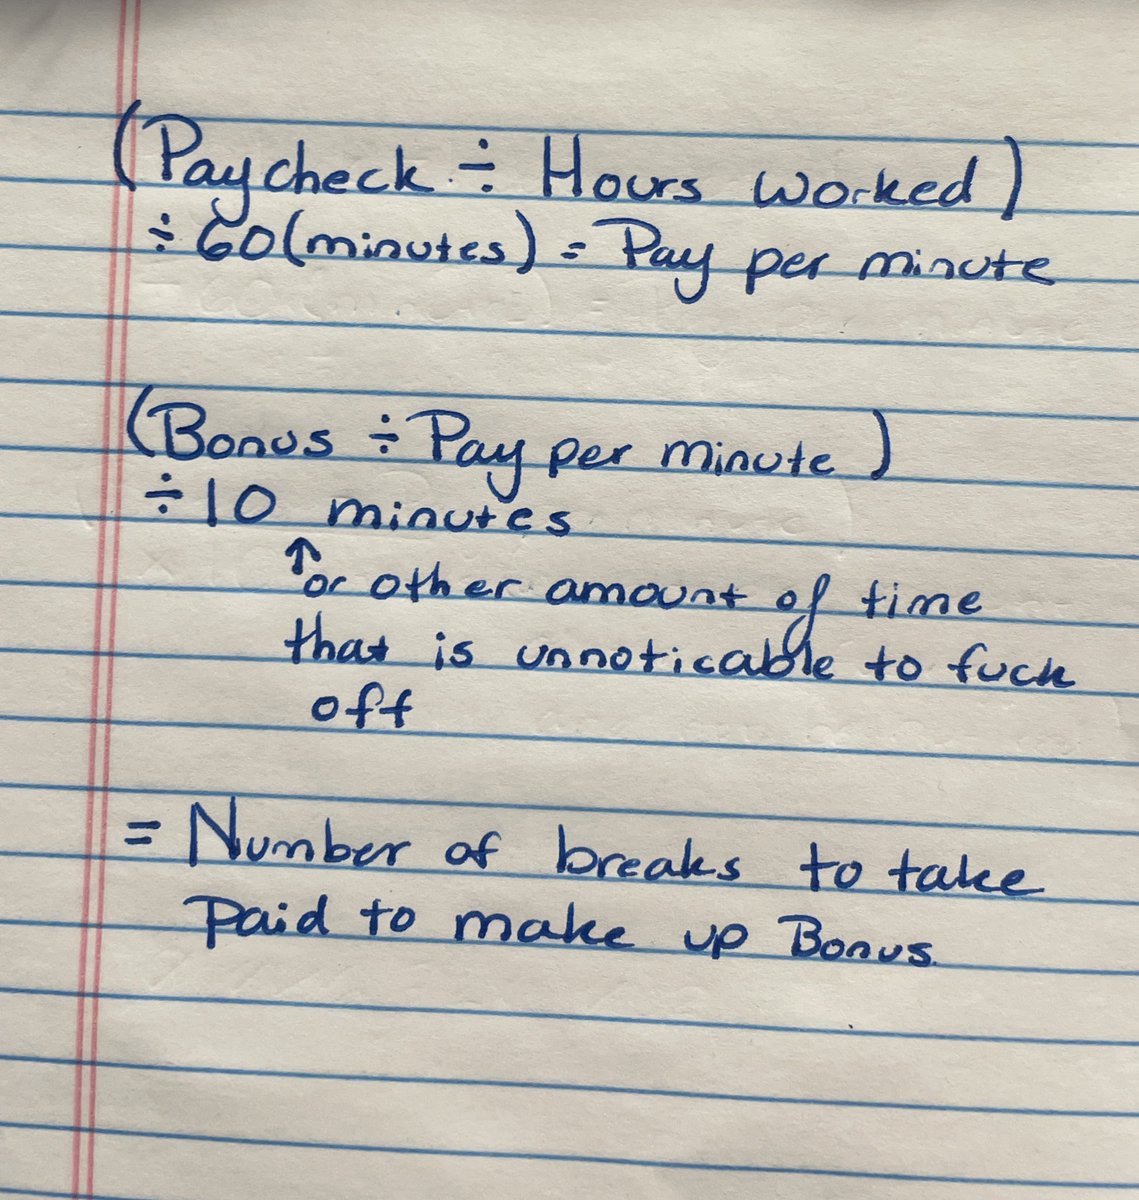 (Paycheck ÷ Hours worked)
÷ 60(minutes) = Pay per minute
(Bonus ÷ Pay per minute)
÷ 10 minutes
↑ or other amount of time
that is unnoticable to fuck
off
= Number of breaks to take
Paid to make up Bonus.